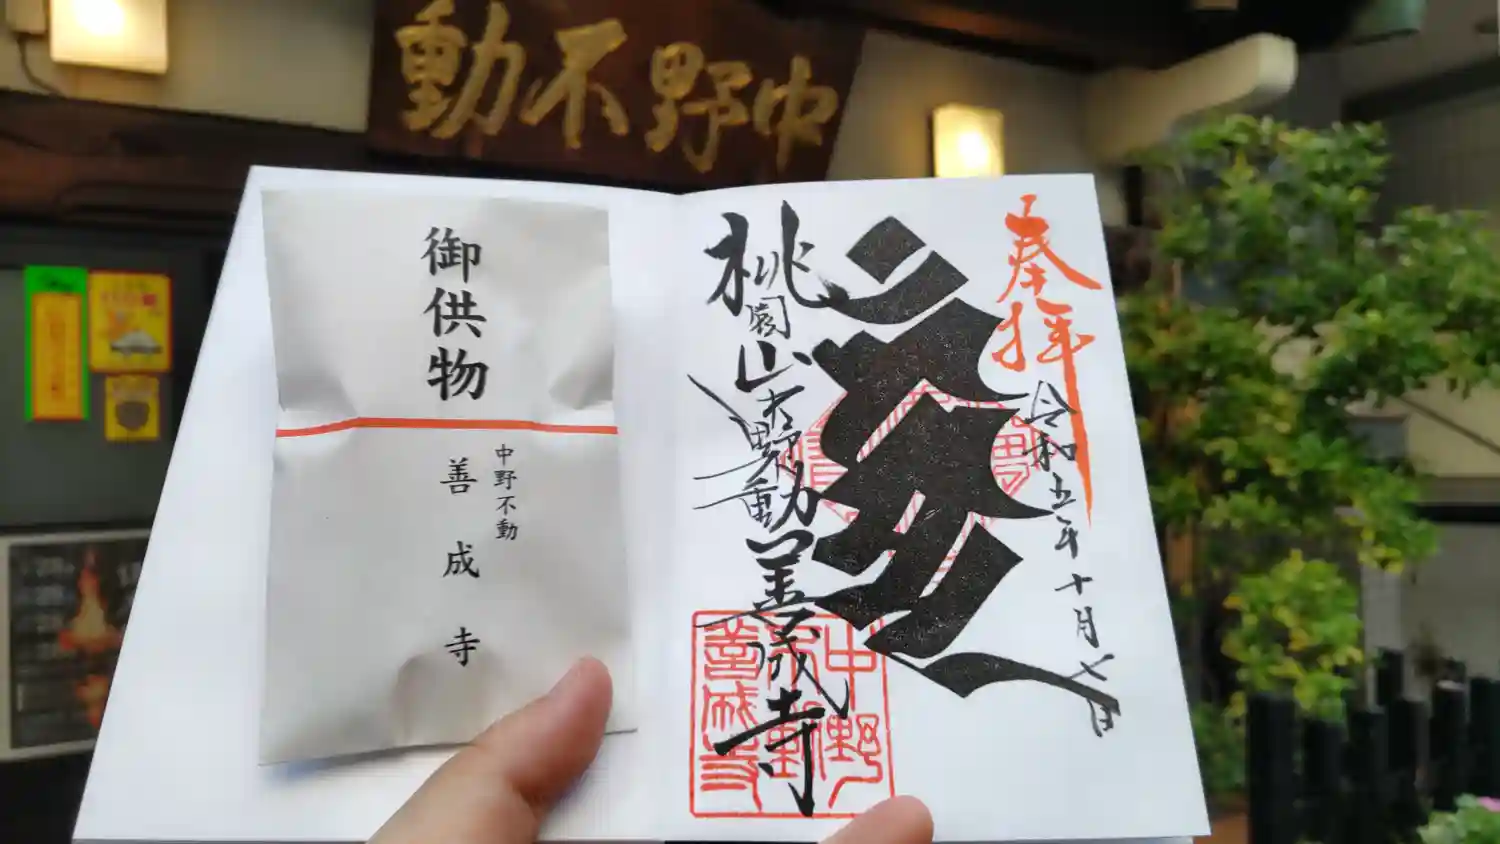 動不野中
御供物
中野不動
善成寺
奉拝
令和五年十月七日
桃園山中野不動善成寺
中野
不動
善成寺